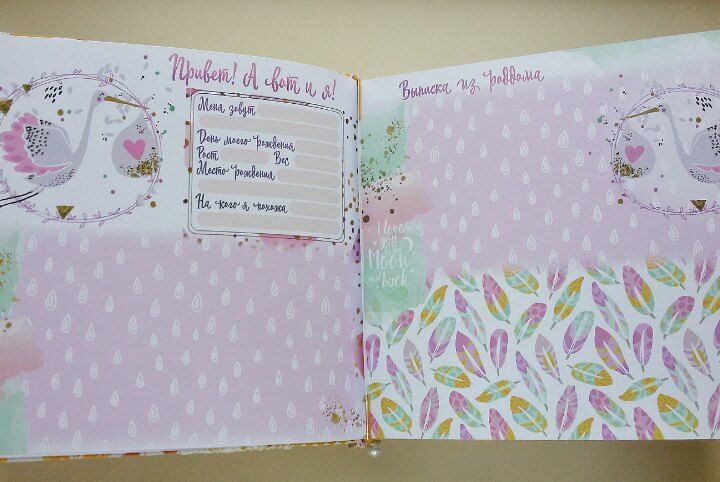 Привет! А вот и я!
Меня зовут
День моего рождения
Рост Вес
Место рождения
На кого я похожа
Выписка из роддома
I love
you
to the
Moon
and
back